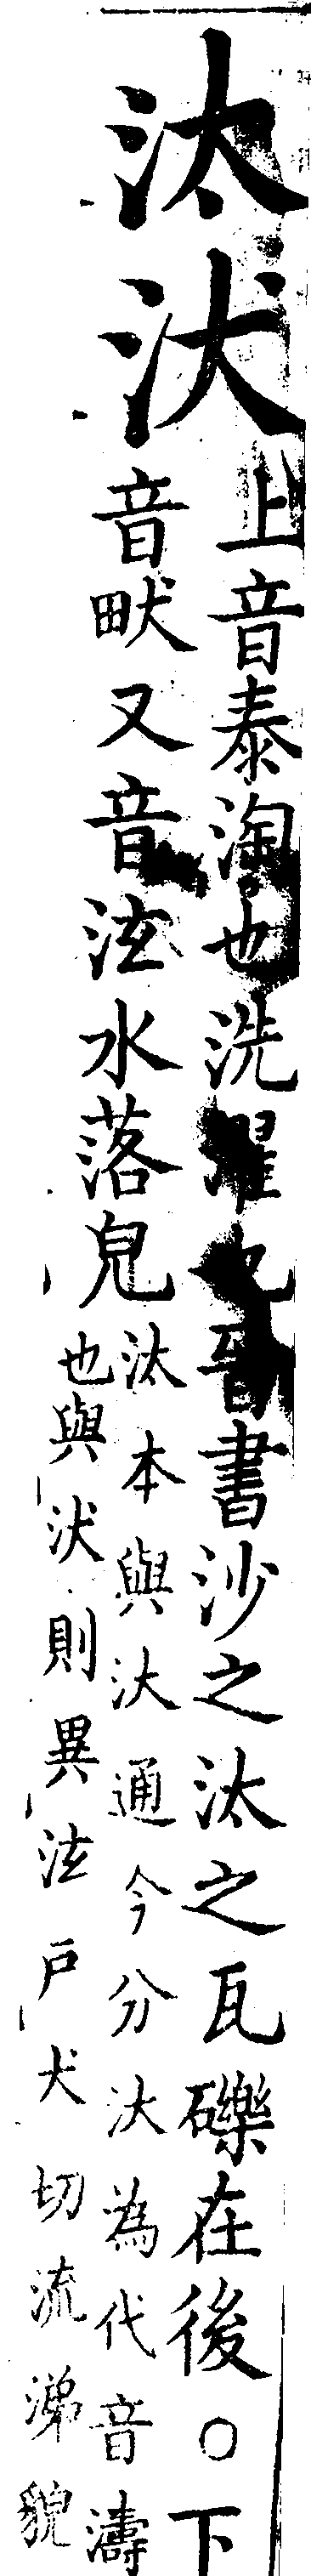 汰汱
上音泰淘也洗濯也晉書沙之汰之瓦礫在後○下
音畎又音泫水落皃
汰本與汏通今分汏為代音濤
也與汱則異泫戶犬切流涕貌